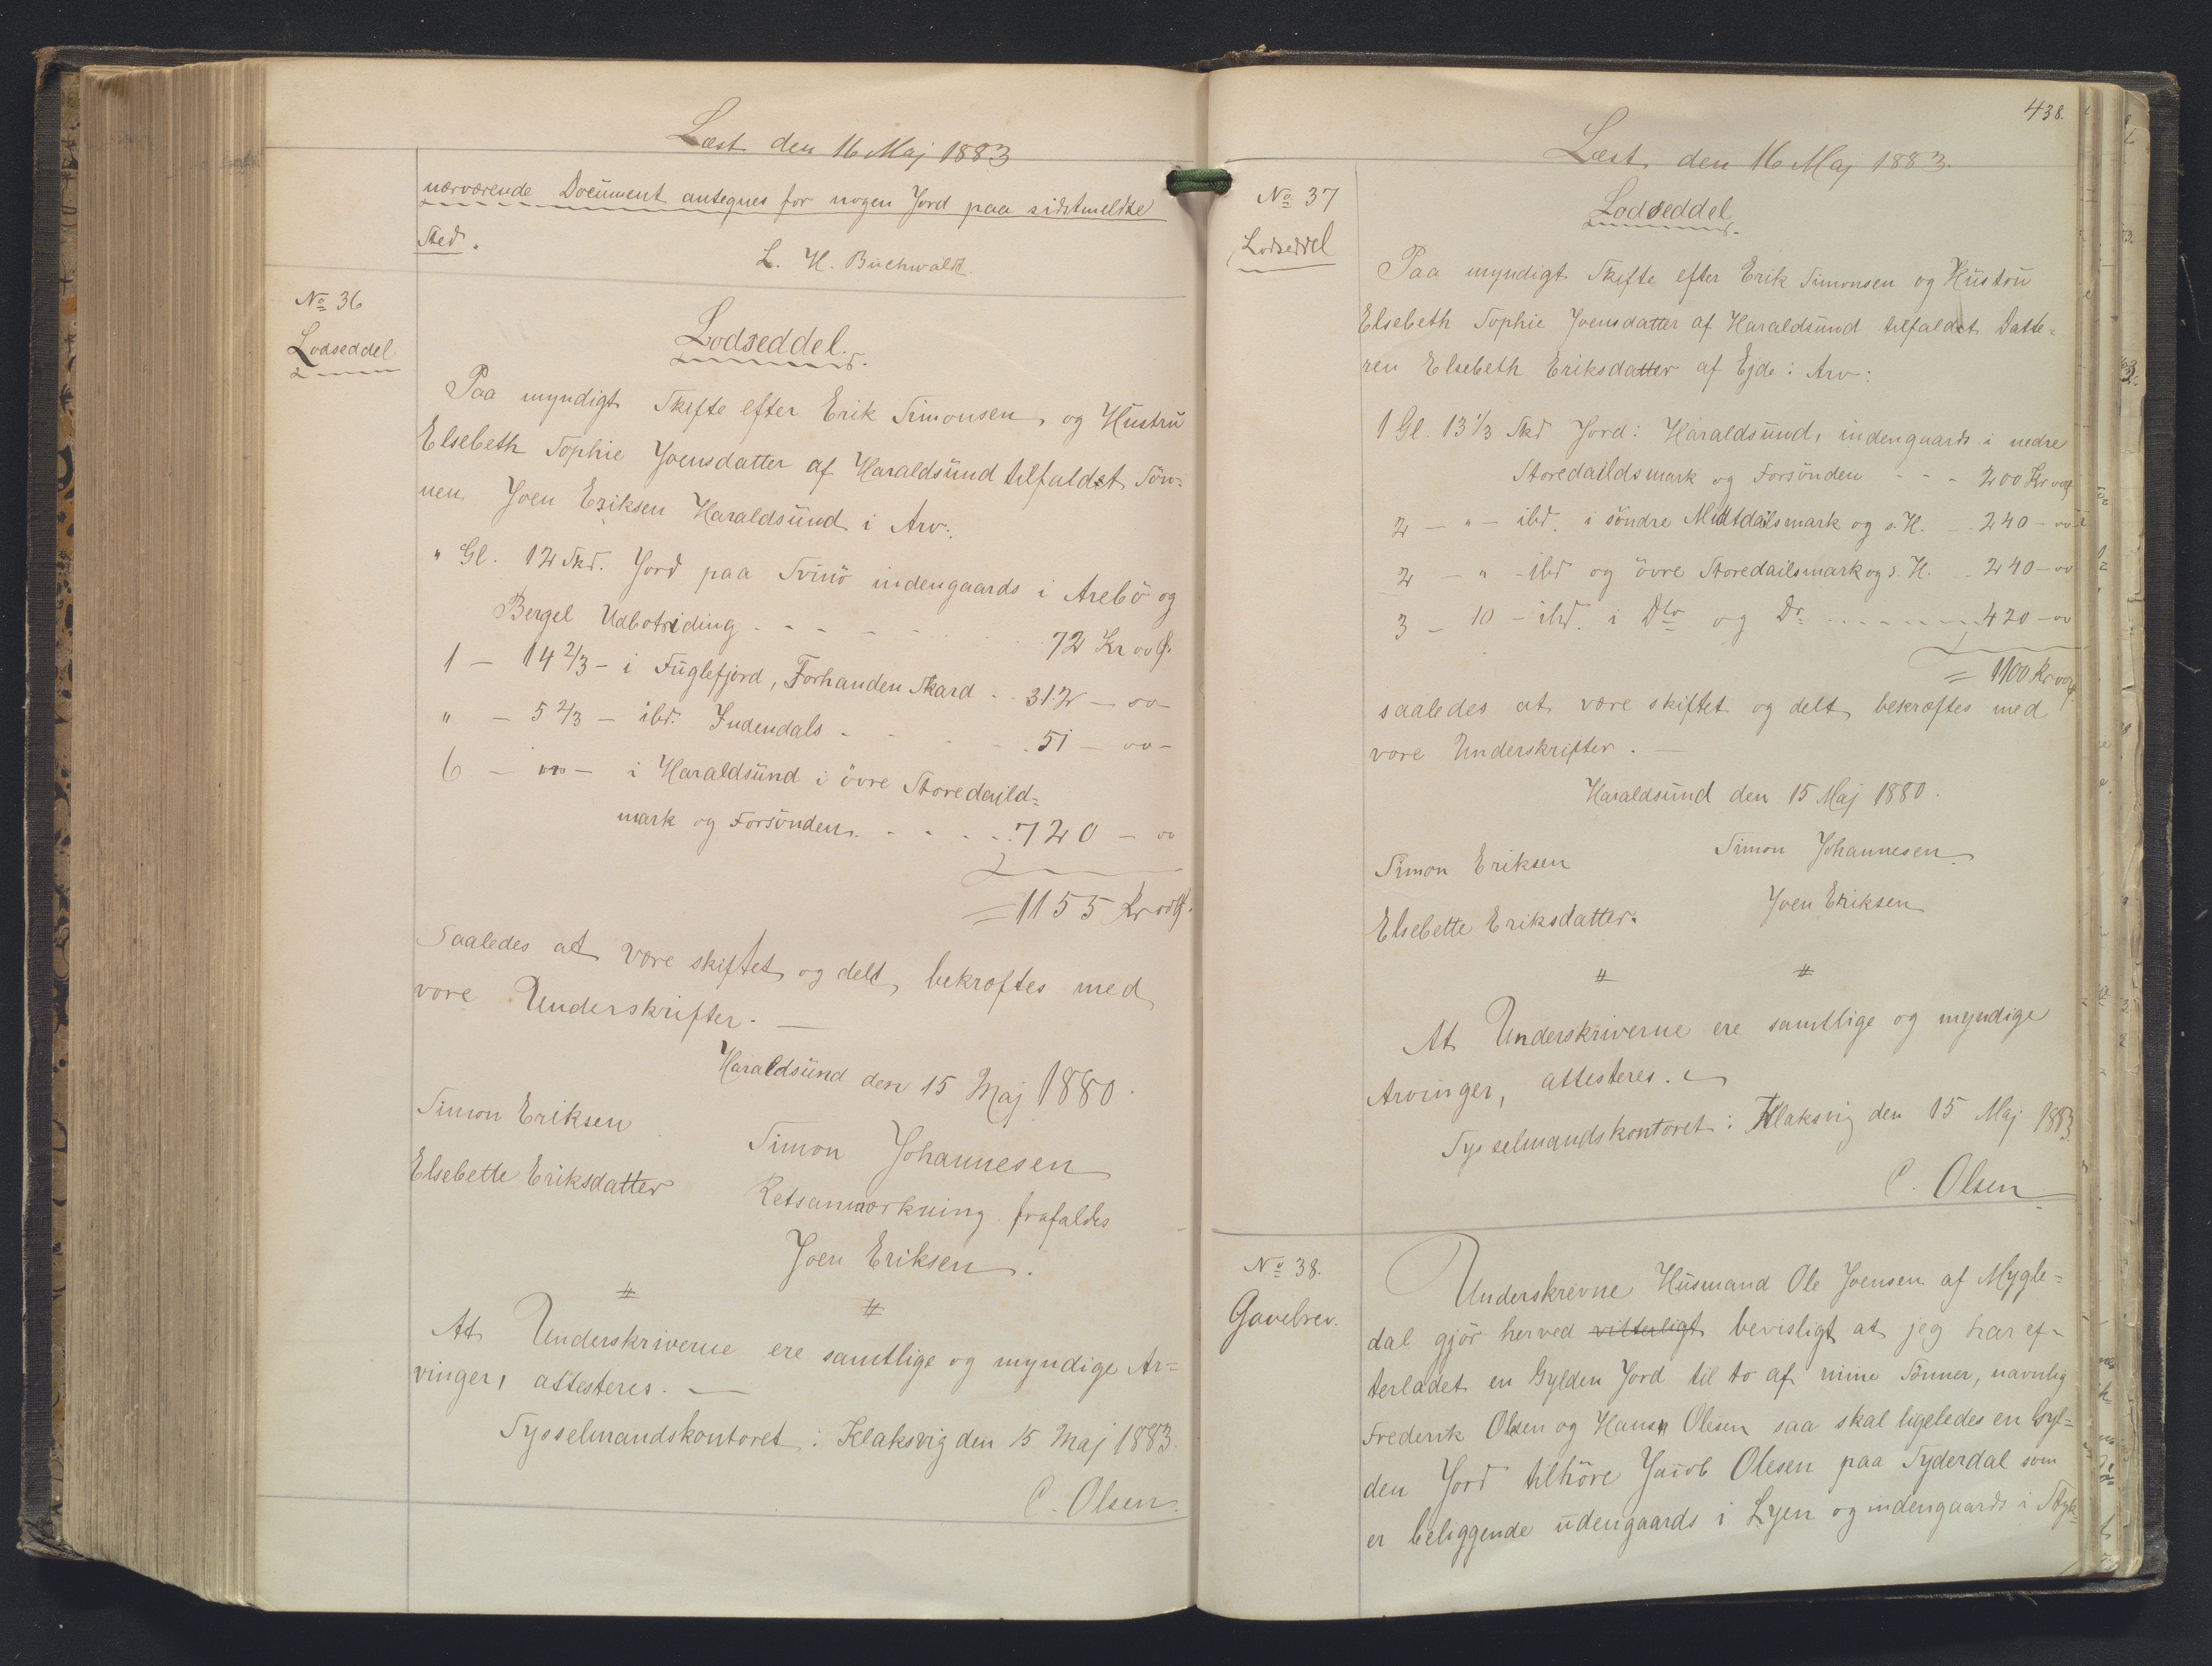 Læst den 16 Maj 1883
nærværende Document antegnes for nogen Jord paa sidstmeldte
Sted.
L. H. Buchwaldt.
No 36
Lodseddel
Lodseddel.
Paa myndigt Skifte efter Erik Simonsen og Hustru
Elsebeth Sophie Joensdatter af Haraldsund tilfaldet Søn-
nen Joen Eriksen Haraldsund i Arv:
" Gl. 12 Skd. Jord paa Svinø indengaards i Arebø og
Bergel Udbotriding - - - - - 72 Kr oo Ø.
1 — 14 2/3 - i Fuglefjord, Forhanden Skard - - 312 — oo -
" — 5 2/3 — ibd. Indendals - - - - - 51 — oo -
6 — " — i Haraldsund i øvre Storedaild=
mark og Forsønden. - - - - 720 — oo
= 1155 Kr oo Ø.
Saaledes at være skiftet og delt, bekræftes med
vore Underskrifter. —
Haraldsund den 15 Maj 1880.
Simon Eriksen
Simon Johannesen
Elsebette Eriksdatter
Retsanmærkning frafaldes
Joen Eriksen.
# #
At Underskriverne ere samtlige og myndige Ar=
vinger, attesteres. —
Sysselmandskontoret i Klaksvig den 15 Maj 1883.
C. Olsen.
438.
Læst den 16 Maj 1883.
No 37
Lodseddel
Lodseddel.
Paa myndigt Skifte efter Erik Simonsen og Hustru
Elsebeth Sophie Joensdatter af Haraldsund tilfaldet Datte=
ren Elsebeth Eriksdatter af Ejde i Arv:
1 Gl. 13 1/3 Skd Jord i Haraldsund, indengaards i nedre
Storedaildsmark og Forsønden - - - 200 Kr oo Ø
2 — " — ibd. i søndre Midtdailsmark og s. H. - - 240 — oo
2 — " — ibd og øvre Storedailsmark og s. H. - 240 — oo
3 — 10 — ibd. i Dto og Do - - - - - - 420 — oo
= 1100 Kr oo Ø.
saaledes at være skiftet og delt, bekræftes med
vore Underskrifter. —
Haraldsund den 15 Maj 1880.
Simon Eriksen
Simon Johannesen.
Elsebette Eriksdatter.
Joen Eriksen
# #
At Underskriverne ere samtlige og myndige
Arvinger, attesteres. —
Sysselmandskontoret i Klaksvig den 15 Maj 1883.
C. Olsen
No 38.
Gavebrev.
Underskrevne Husmand Ole Joensen af Mygle=
dal gjør herved vitterligt bevisligt at jeg har ef-
terladet en Gylden Jord til to af mine Sønner, navnlig
Frederik Olsen og Hans Olesen saa skal ligeledes en Gyl=
den Jord tilhøre Jacob Olesen paa Syderdal som
er beliggende udengaards i Lyen og indengaards i Styk-